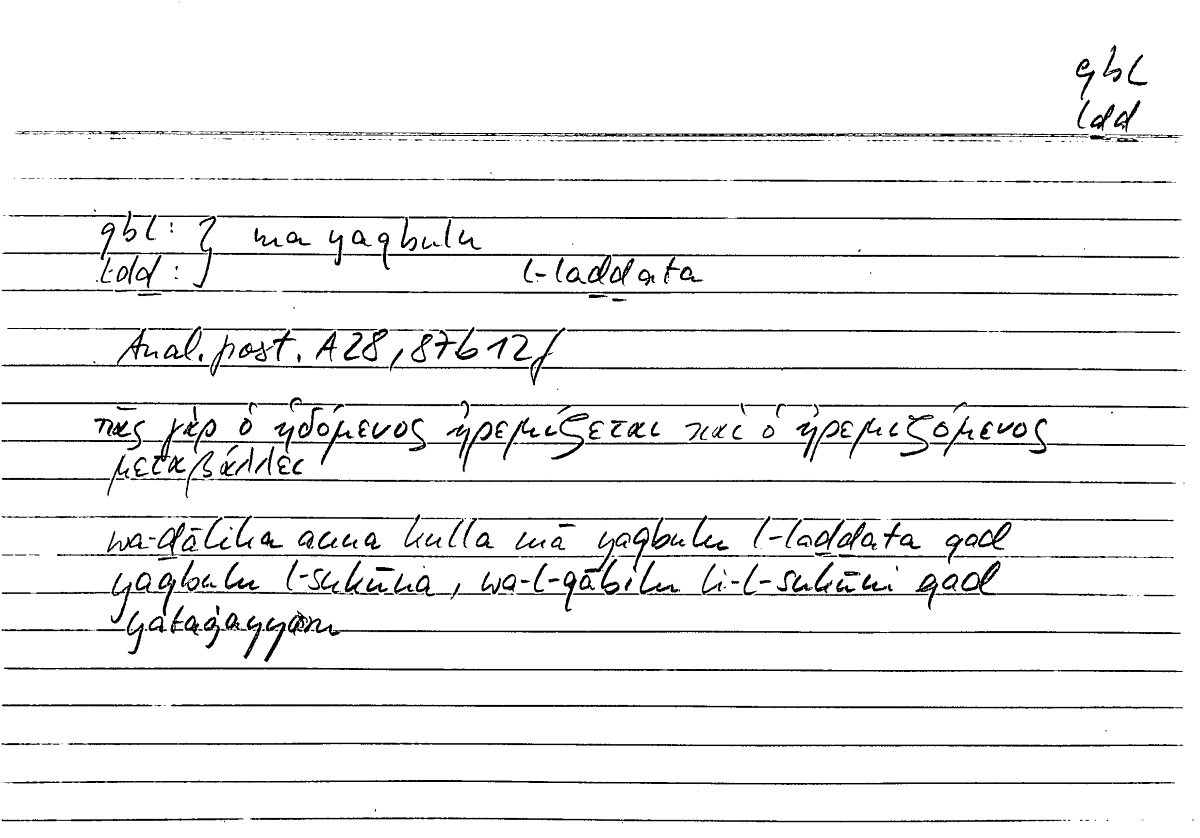 qbl
lḏḏ
qbl: } ma yaqbulu
lḏḏ: } l-laḏḏata
Anal. post. A 28, 87b 12f
πᾶς γὰρ ὁ ἡδόμενος ἠρεμίζεται καὶ ὁ ἠρεμιζόμενος
μεταβάλλει
wa-ḏālika anna kulla mā yaqbulu l-laḏḏata qad
yaqbulu l-sukūna, wa-l-qābilu li-l-sukūni qad
yataġayyaru